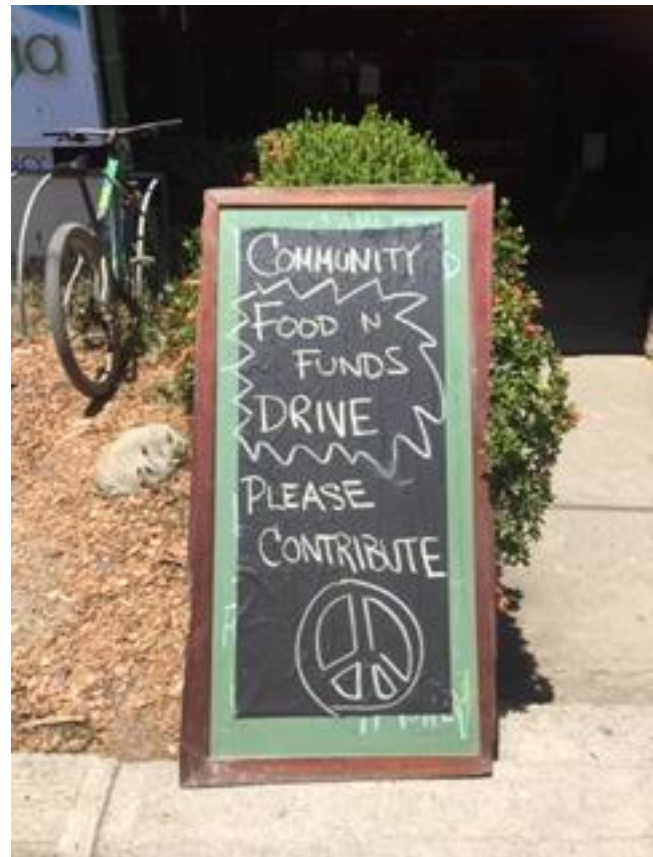 COMMUNITY
FOOD N
FUNDS
DRIVE
PLEASE
CONTRIBUTE